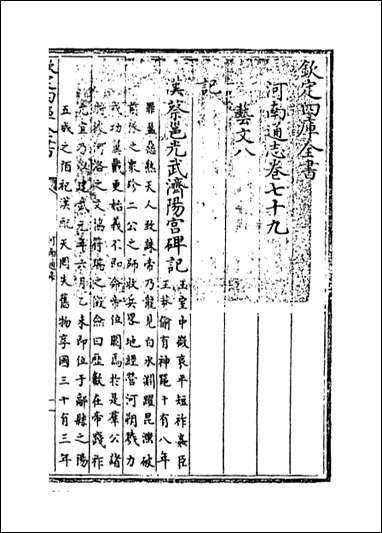 欽定四庫全書
河南通志卷七十九
藝文八
記
漢蔡邕光武濟陽宮碑記
王室中微哀平短祚姦臣
王莽偷有神器十有八年
罪盈惡熟天人致誅帝乃龍見白水淵躍昆滍破
前隊之衆殄二公之師收兵畧地經營河朔戮力
戎功翼戴更始義不即命帝位闕焉於是羣公諸
將據河洛之文協符瑞之徵僉曰歷數在帝踐祚
允宜乃以建武元年六月乙未即位于鄗縣之陽
五成之陌祀漢配天罔失舊物享國三十有三年